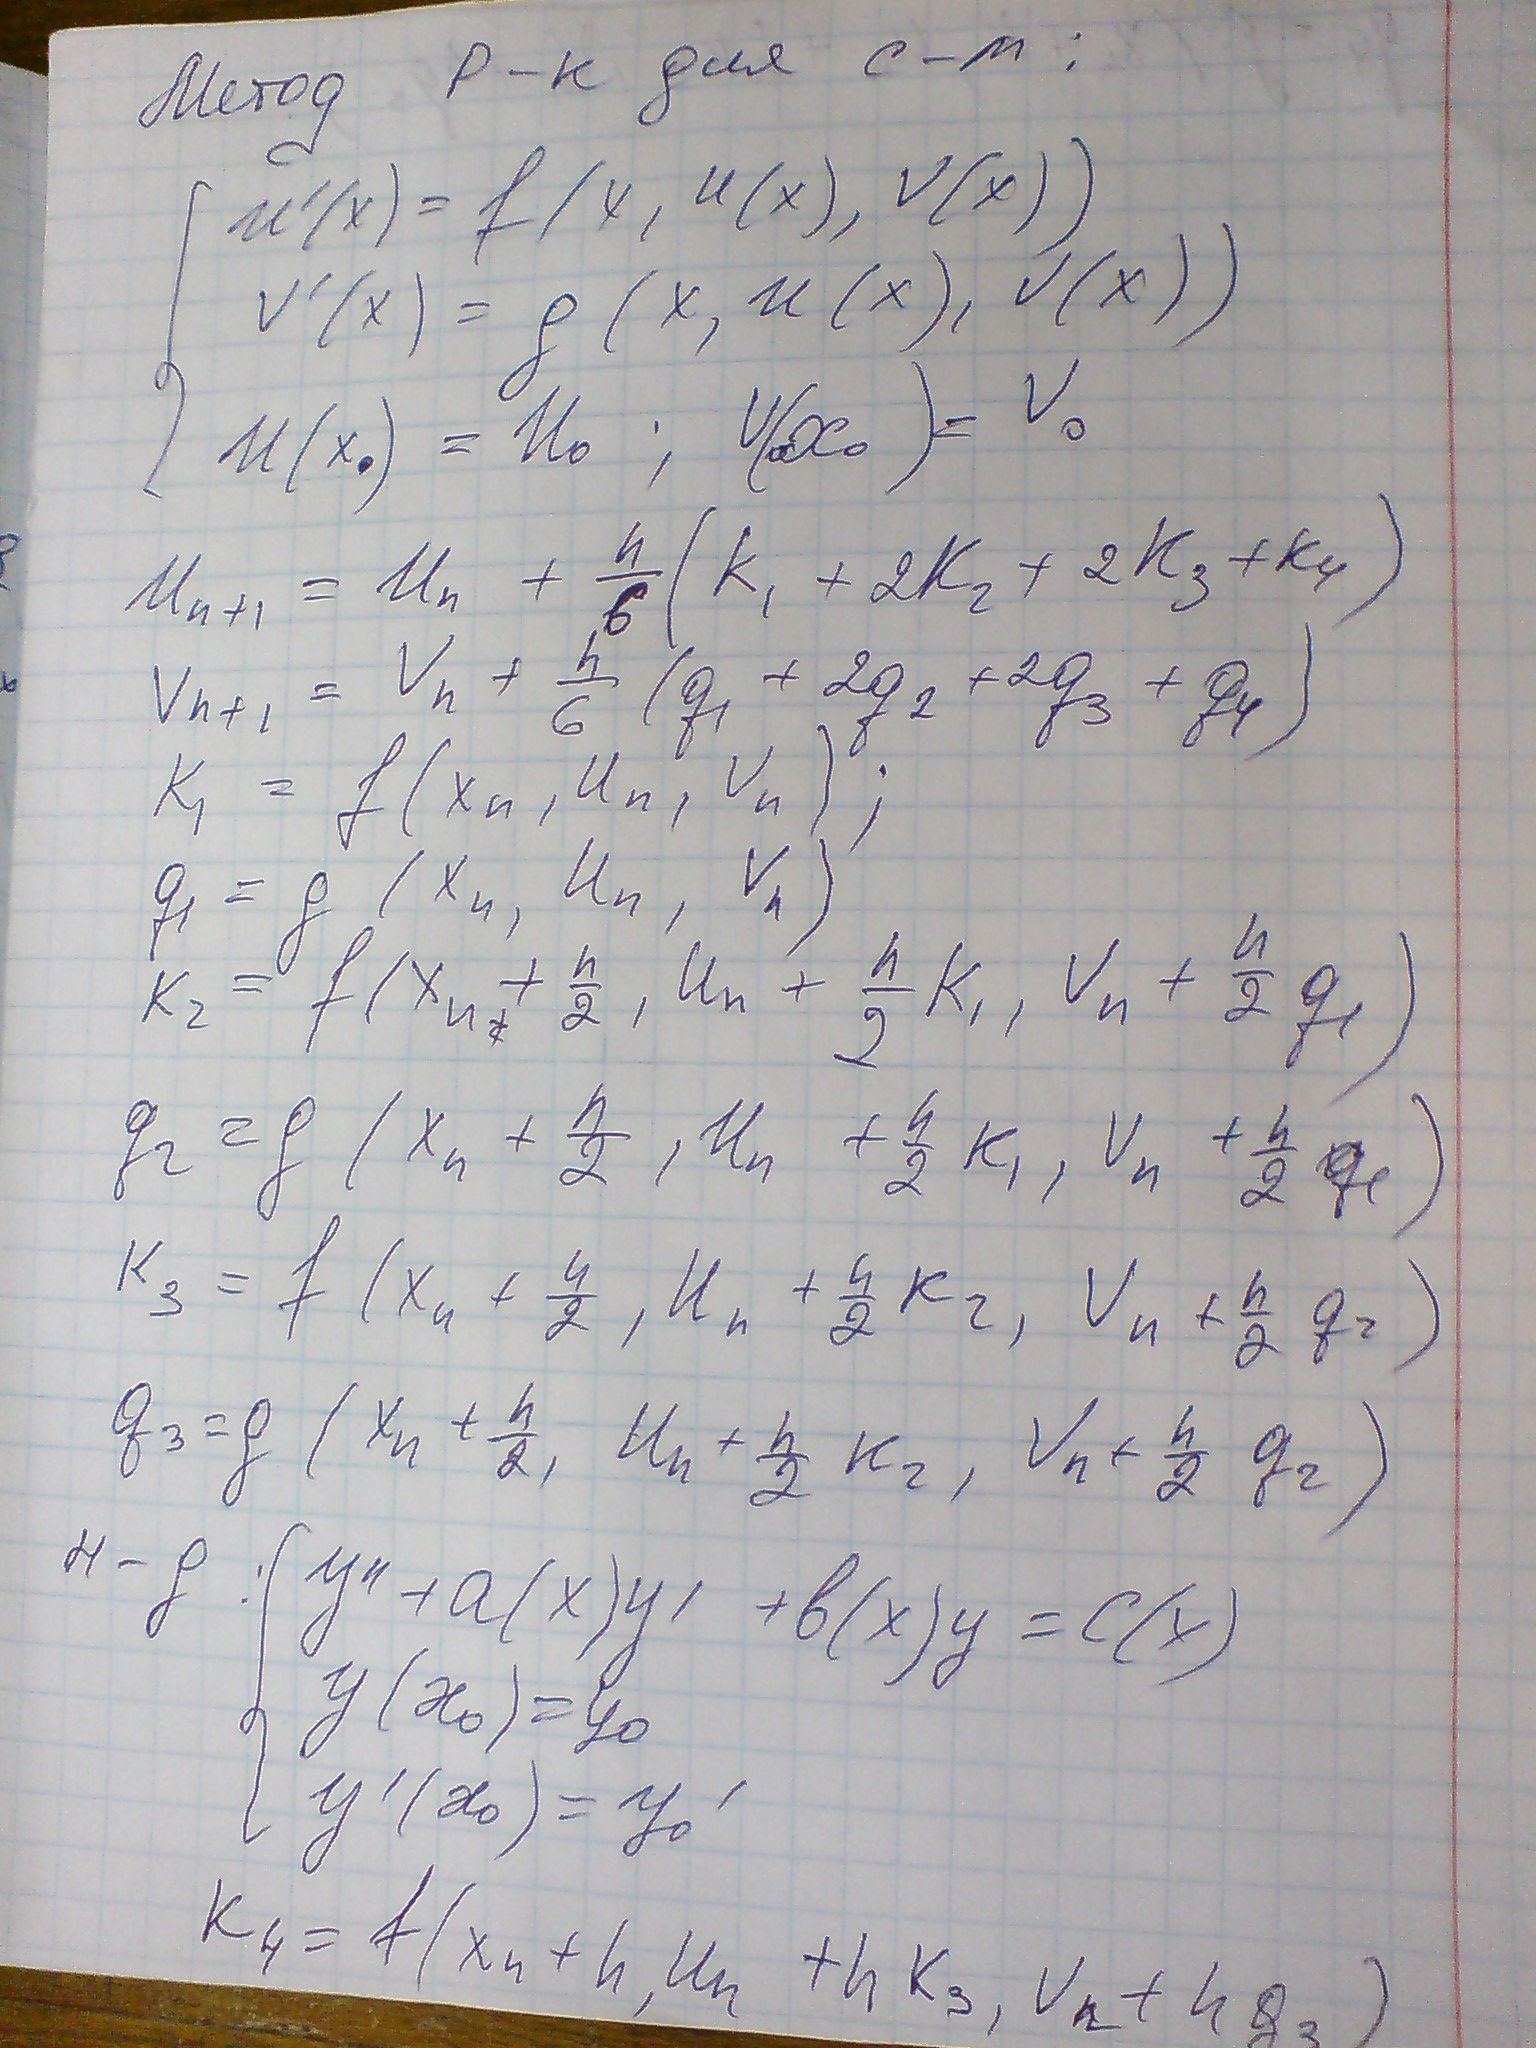 Метод Р-К для с-м:
u'(x) = f(x, u(x), v(x))
v'(x) = g(x, u(x), v(x))
u(x₀) = u₀ ; v(x₀) = v₀
uₙ₊₁ = uₙ + h/6 (k₁ + 2k₂ + 2k₃ + k₄)
vₙ₊₁ = vₙ + h/6 (q₁ + 2q₂ + 2q₃ + q₄)
k₁ = f(xₙ, uₙ, vₙ);
q₁ = g(xₙ, uₙ, vₙ)
k₂ = f(xₙ + h/2, uₙ + h/2 k₁, vₙ + h/2 q₁)
q₂ = g(xₙ + h/2, uₙ + h/2 k₁, vₙ + h/2 q₁)
k₃ = f(xₙ + h/2, uₙ + h/2 k₂, vₙ + h/2 q₂)
q₃ = g(xₙ + h/2, uₙ + h/2 k₂, vₙ + h/2 q₂)
y'' + a(x)y' + b(x)y = c(x)
y(x₀) = y₀
y'(x₀) = y₀'
k₄ = f(xₙ + h, uₙ + h k₃, vₙ + h q₃)